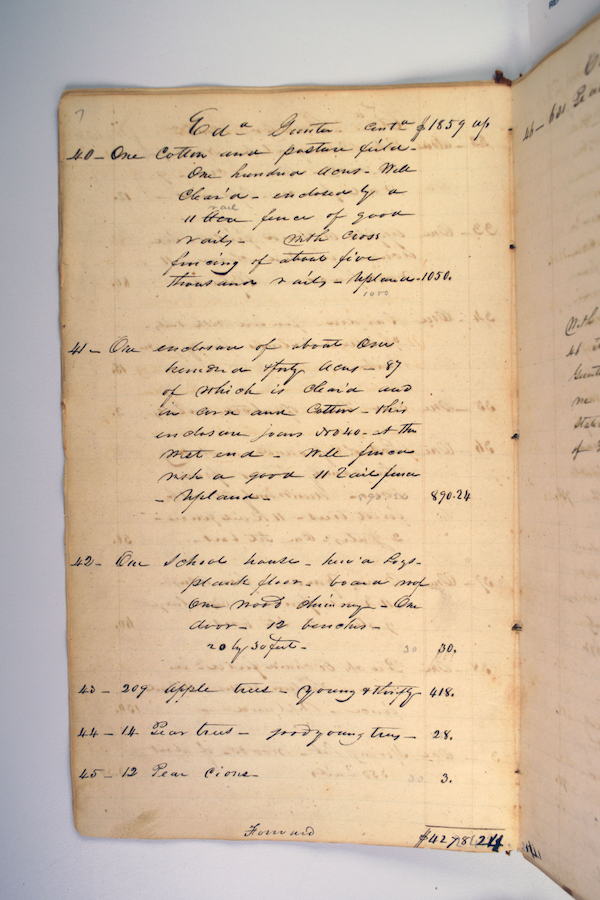 7
Edᵃ Gunter contᵈ $1859 up
40 - One Cotton and pasture field -
One hundred Acres - Well
Clear'd - enclosed by a
rail
11 fence of good
rails - with Cross
fencing of about five
thousand rails - Upland - 1050.
1050
41 - One enclosure of about One
hundred & forty Acres - 87
of which is Clear'd and
in corn and Cotton - this
enclosure joins No 40 - at the
West end - Well fenced
with a good 11 rail fence
- Upland - 890.24
42 - One School house - hew'd Logs -
plank floor - board roof
One wood chimney - One
door - 12 benches -
20 by 30 feet - 30 30.
43 - 209 Apple trees - young & thrifty 418.
44 - 14 Pear trees - good young trees - 28.
45 - 12 Pear Cions 3.
Forward $4278.24
With
41
of